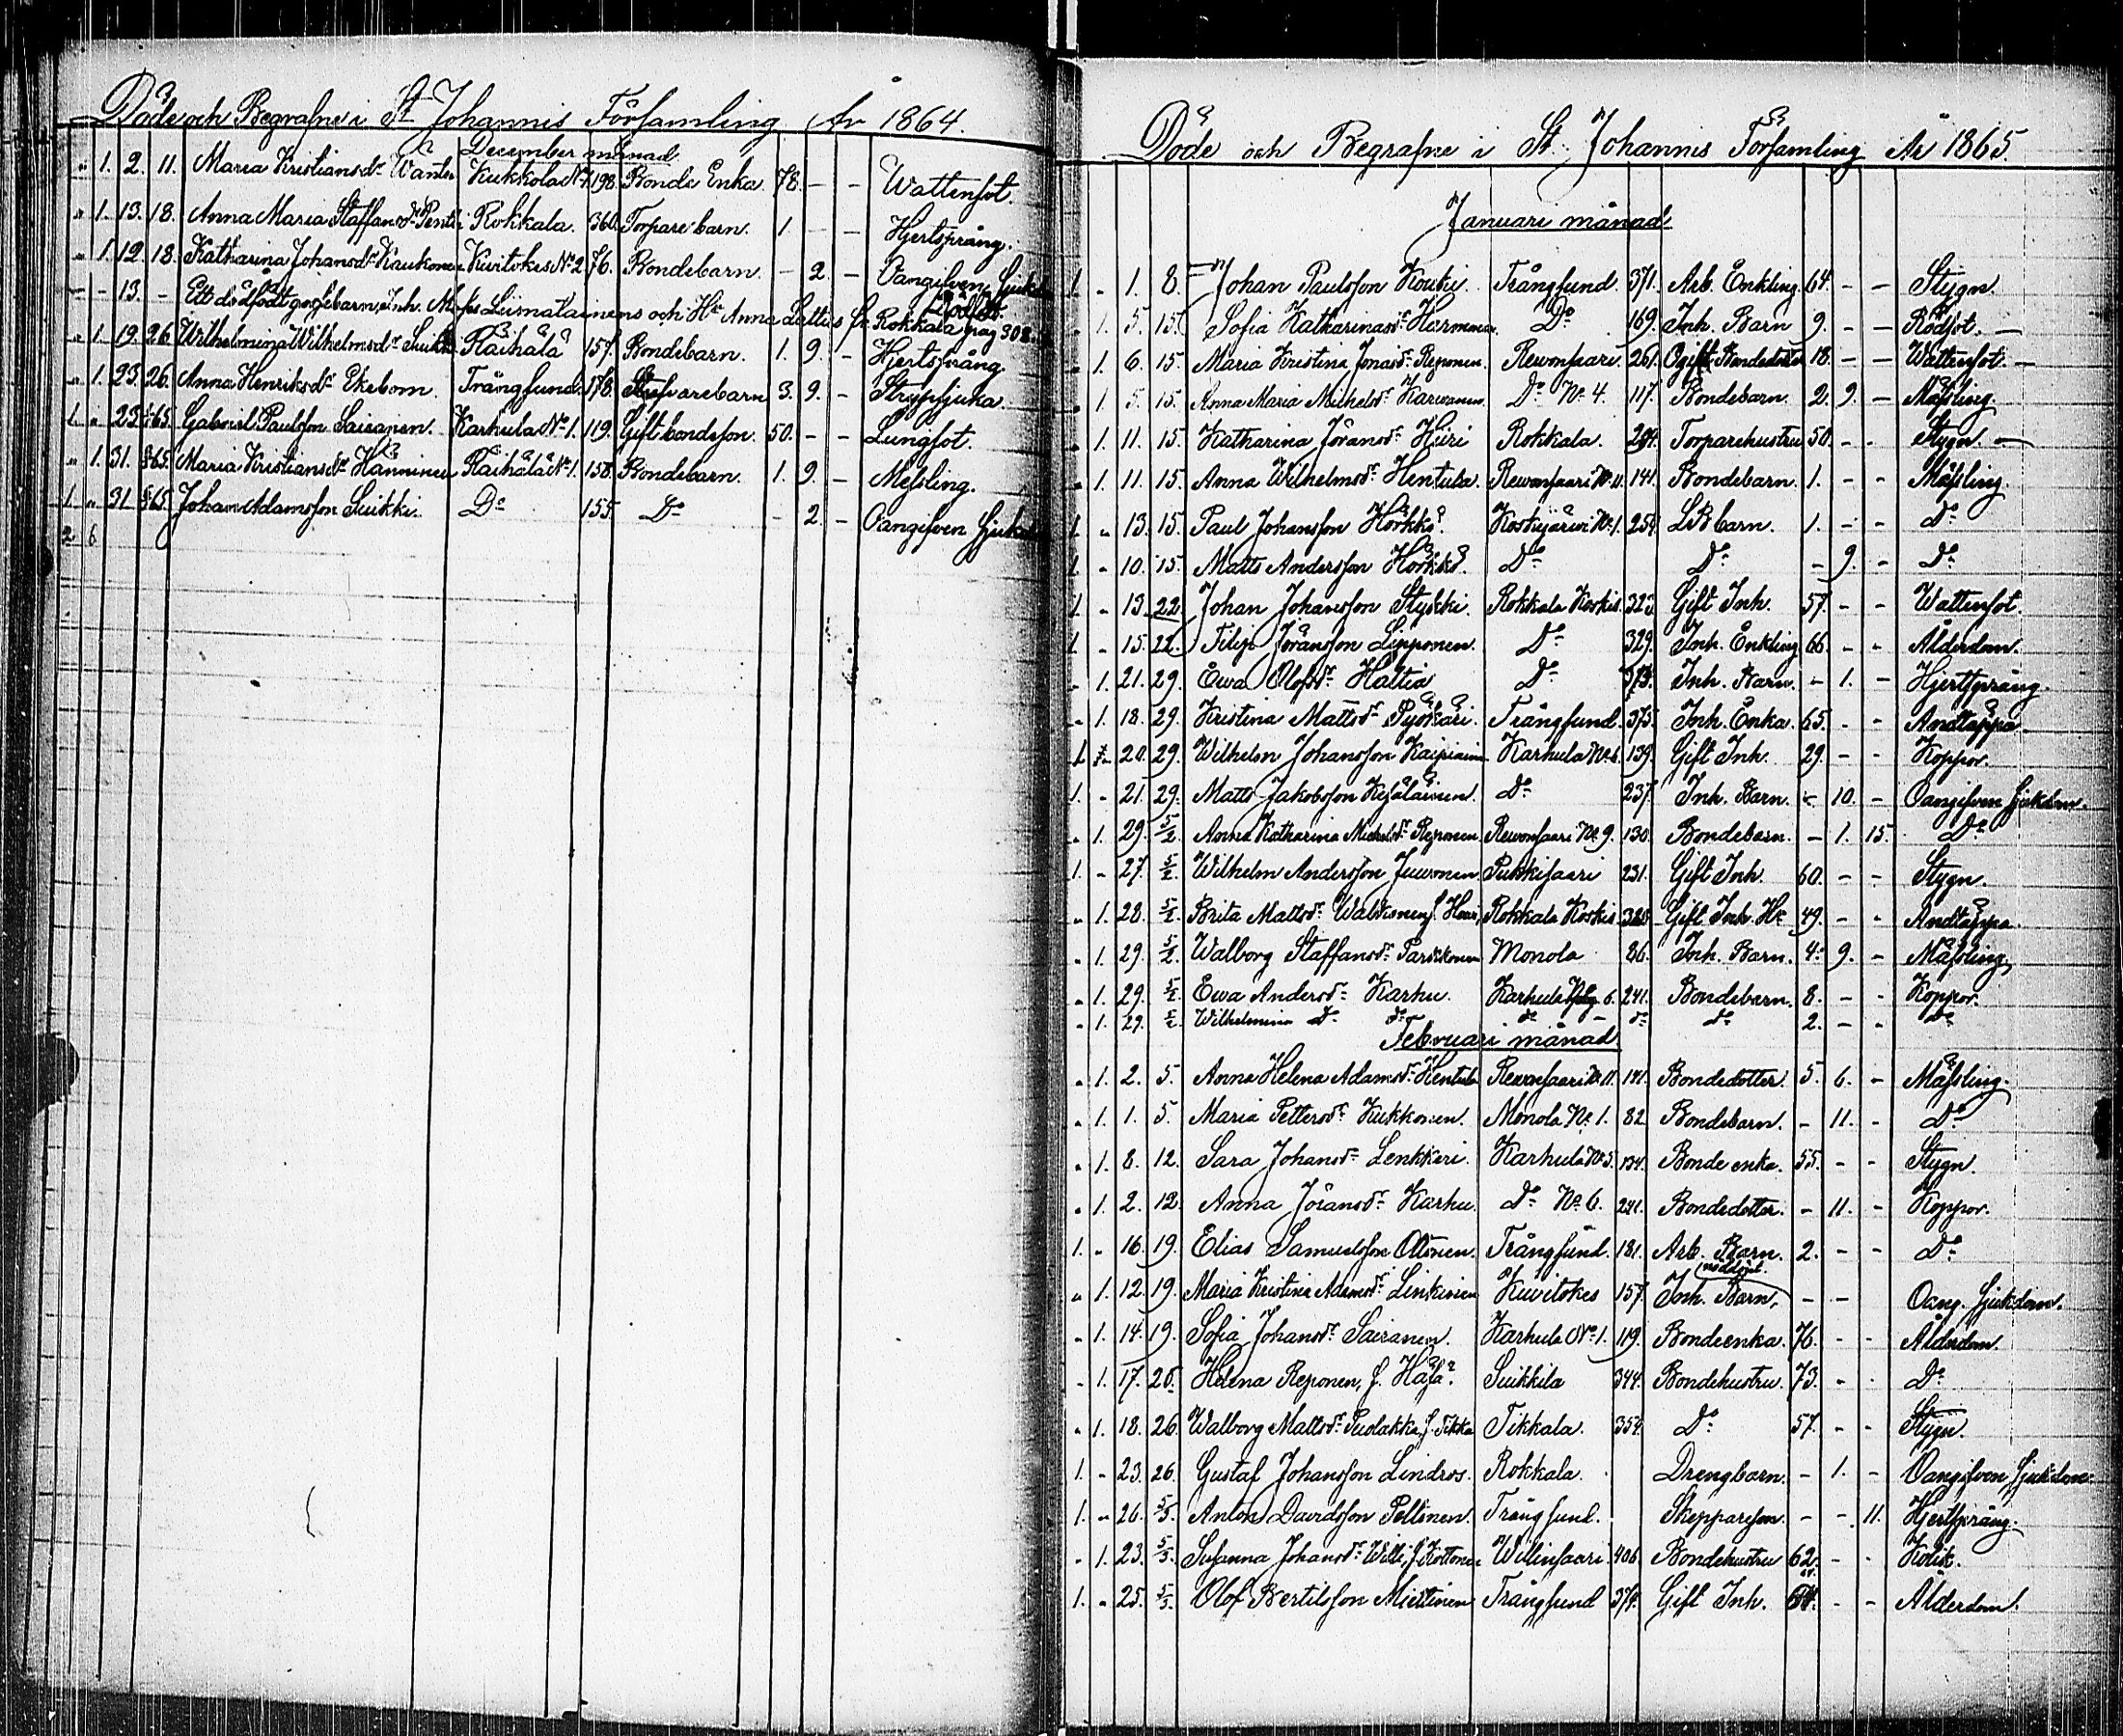 Döde och Begrafne i St Johannis Församling År 1864.
December månad
" 1. 2. 11. Maria Kristiansdr Wänter Kukkola No 1. 198. Bonde Enka. 78. - - Wattensot.
" 1. 13. 18. Anna Maria Staffansdr Pentti Rokkala. 360. Torpare barn. 1. - - Hjertsprång.
" 1. 12. 18. Katharina Johansdr Kaukonen Kuitokes No 2. 76. Bondebarn. - 2. - Oangifven Sjukd
- - 13. - Ett dödfödt gossebarn, Inh. Mats Liimatainens och Hu Anna Lattus fr. Rokkala pag 302.
" 1. 19. 26. Wilhelmina Wilhelmsdr Suikki Räihälä 157. Bondebarn. 1. 9. - Hjertsprång
" 1. 23. 26. Anna Henriksdr Ekebom. Trångsund. 178. barn 3. 9. - Strypsjuka.
1. " 23. 65. Gabriel Paulsson Sairanen. Karhula No 1. 119. Gift bondeson. 50. - - Lungsot.
" 1. 31. 65. Maria Kristiansdr Hänninen Räihälä No 1. 158. Bondebarn. 1. 9. - Messling.
1. " 31. 65. Johan Adamsson Suikki. Do 155. Do - 2. - Oangifven Sjukd
2 6
Döde och Begrafne i St. Johannis Församling År 1865.
Januari månad
1. - 1. 8. Johan Paulsson Kouki. Trångsund. 371. Arb. Enkling. 64. - - Stygn.
" 1. 5. 15. Sofia Katharinasdr Harmanen. Do 169. Inh. Barn 9. - - Rödsot. -
" 1. 6. 15. Maria Kristina Jonasdr Reponen. Rewonsaari. 261. Ogift Bondedotter 18. - - Wattensot. -
" 1. 5. 15. Anna Maria Michelsdr Karwanen. Do No 4. 117. Bondebarn. 2. 9. - Mässling.
" 1. 11. 15. Katharina Jöransdr Hiiri Rokkala. 284. Torparehustru 50. - - Stygn. -
" 1. 11. 15. Anna Wilhelmsdr Hentula. Rewonsaari No 11. 141. Bondebarn. 1. - - Mässling.
1. " 13. 15. Paul Johansson Hörkkö. Koskijärwi No 1. 254. LB barn. 1. - - Do
1. - 10. 15. Matts Andersson Hörkkö. Do Do - 9. - Do
1. - 13. 22. Johan Johansson Stykki. Rokkala Koskis. 323. Gift Inh. 57. - - Wattensot.
1. - 15. 22. Filip Jöransson Lipponen. Do 329. Inh. Enkling 66. - - Ålderdom.
- 1. 21. 29. Ewa Olofsdr Haltia Do 373. Inh. Barn. - 1. - Hjertsprång.
- 1. 18. 29. Kristina Mattsdr Pyökäri. Trångsund. 375. Inh. Enka. 65. - - Andtäppa
1. - 20. 29. Wilhelm Johansson Kaipiainen Karhula No 6. 139. Gift Inh. 29. - - Koppor.
1. - 21. 29. Matts Jakobsson Kesäläinen. Do 237. Inh. Barn. - 10. - Oangifven Sjukdom.
" 1. 29. 5/2. Anna Katharina Michelsdr Reponen. Rewonsaari No 9. 130. Bondebarn. - 1. 15. Do
1. - 27. 5/2. Wilhelm Andersson Juwonen. Pukkisaari 231. Gift Inh. 60. - - Stygn.
" 1. 28. 5/2. Brita Mattsdr Walkisnen f. Rokkala Koskis 328. Gift Inh. Hu 49. - - Andtäppa.
" 1. 29. 5/2. Walborg Staffansdr Parkkonen Monola 86. Inh. Barn. 4. 9. - Mässling.
" 1. 29. 5/2. Ewa Andersdr Karhu. Karhula 6. 241. Bondebarn. 8. - - Koppor.
" 1. 29. 5/2. Wilhelmina Do do do do do 2. - - Do
Februari månad
" 1. 2. 5. Anna Helena Adamsdr Hentula Rewonsaari No 11. 141. Bondedotter. 5. 6. - Mässling.
" 1. 1. 5. Maria Pettersdr Kukkonen. Monola No 1. 82 Bondebarn. - 11. - Do
" 1. 8. 12. Sara Johansdr Lenkkeri. Karhula No 5. 134. Bonde enka. 55. - - Stygn.
" 1. 2. 12. Anna Jöransdr Karhu. Do No 6. 241. Bondedotter. - 11. - Koppor.
1. " 16. 19. Elias Samuelsson Ottonen. Trångsund. 181. Arb. Barn. 2. - - Do
" 1. 12. 19. Maria Kristina Adamsdr Linkinen Kuwitokes 157. Inh. Barn, nöddöpt. - - Oang. Sjukdom.
" 1. 14. 19. Sofia Johansdr Sairanen. Karhula No 1. 119. Bondeenka. 76. - - Ålderdom.
- 1. 17. 26. Helena Reponen, f. Häsä. Suikkila 344. Bondehustru. 73. - - Do
" 1. 18. 26. Walborg Mattsdr Puolakka, f. Tikka Tikkala. 354. Do 57. - - Stygn.
1. - 23. 26. Gustaf Johansson Lindros. Rokkala. Drengbarn. - 1. - Oangifven Sjukdom.
1. " 26. 5/3. Anton Davidsson Pellinen. Trångsund. Skeppareson. - - 11. Hjertsprång.
- 1. 23. 5/3. Susanna Johansdr Willi, f. Kottonen Wilinsaari. 406. Bondehustru 62. - - Kolik.
1. " 25. 5/3. Olof Bertilsson Miettinen Trångsund 374. Gift Inh. 64. - - Ålderdom.